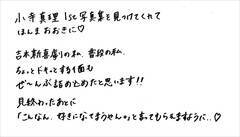 小寺真理 1st写真集を見つけてくれて
ほんま おおきに♡
吉本新喜劇の私、普段の私、
ちょっとドキッとする1面も
ぜ〜んぶ詰め込めたと思います!!
見終わったあとに
「こんなん、好きになってまうやん。」と言ってもらえますように..♡